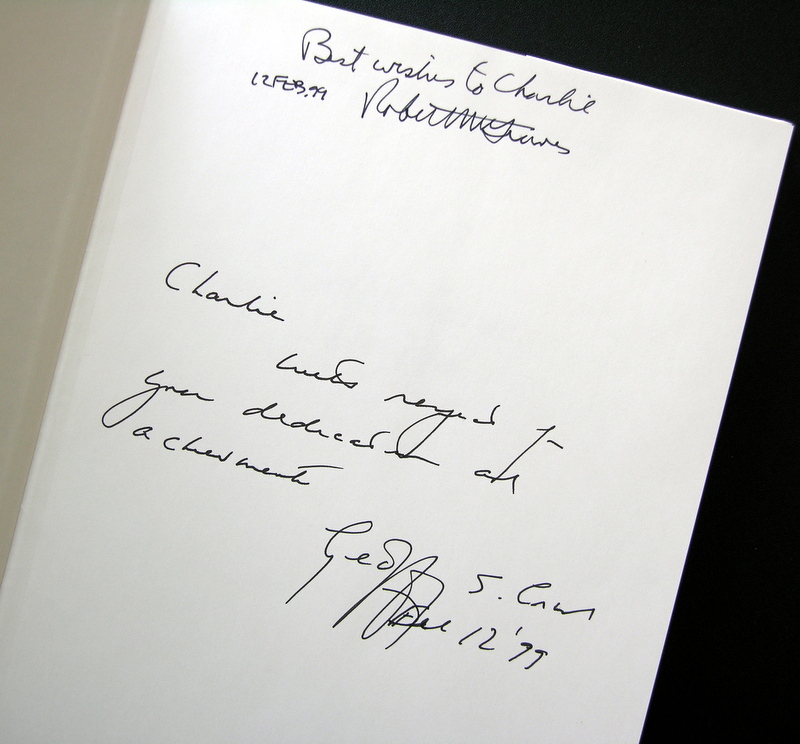 Best wishes to Charlie
12 FEB. 99
Robert
Charlie
with regard to
your dedication and
achievments
Geoffrey S.
Feb 12 '99